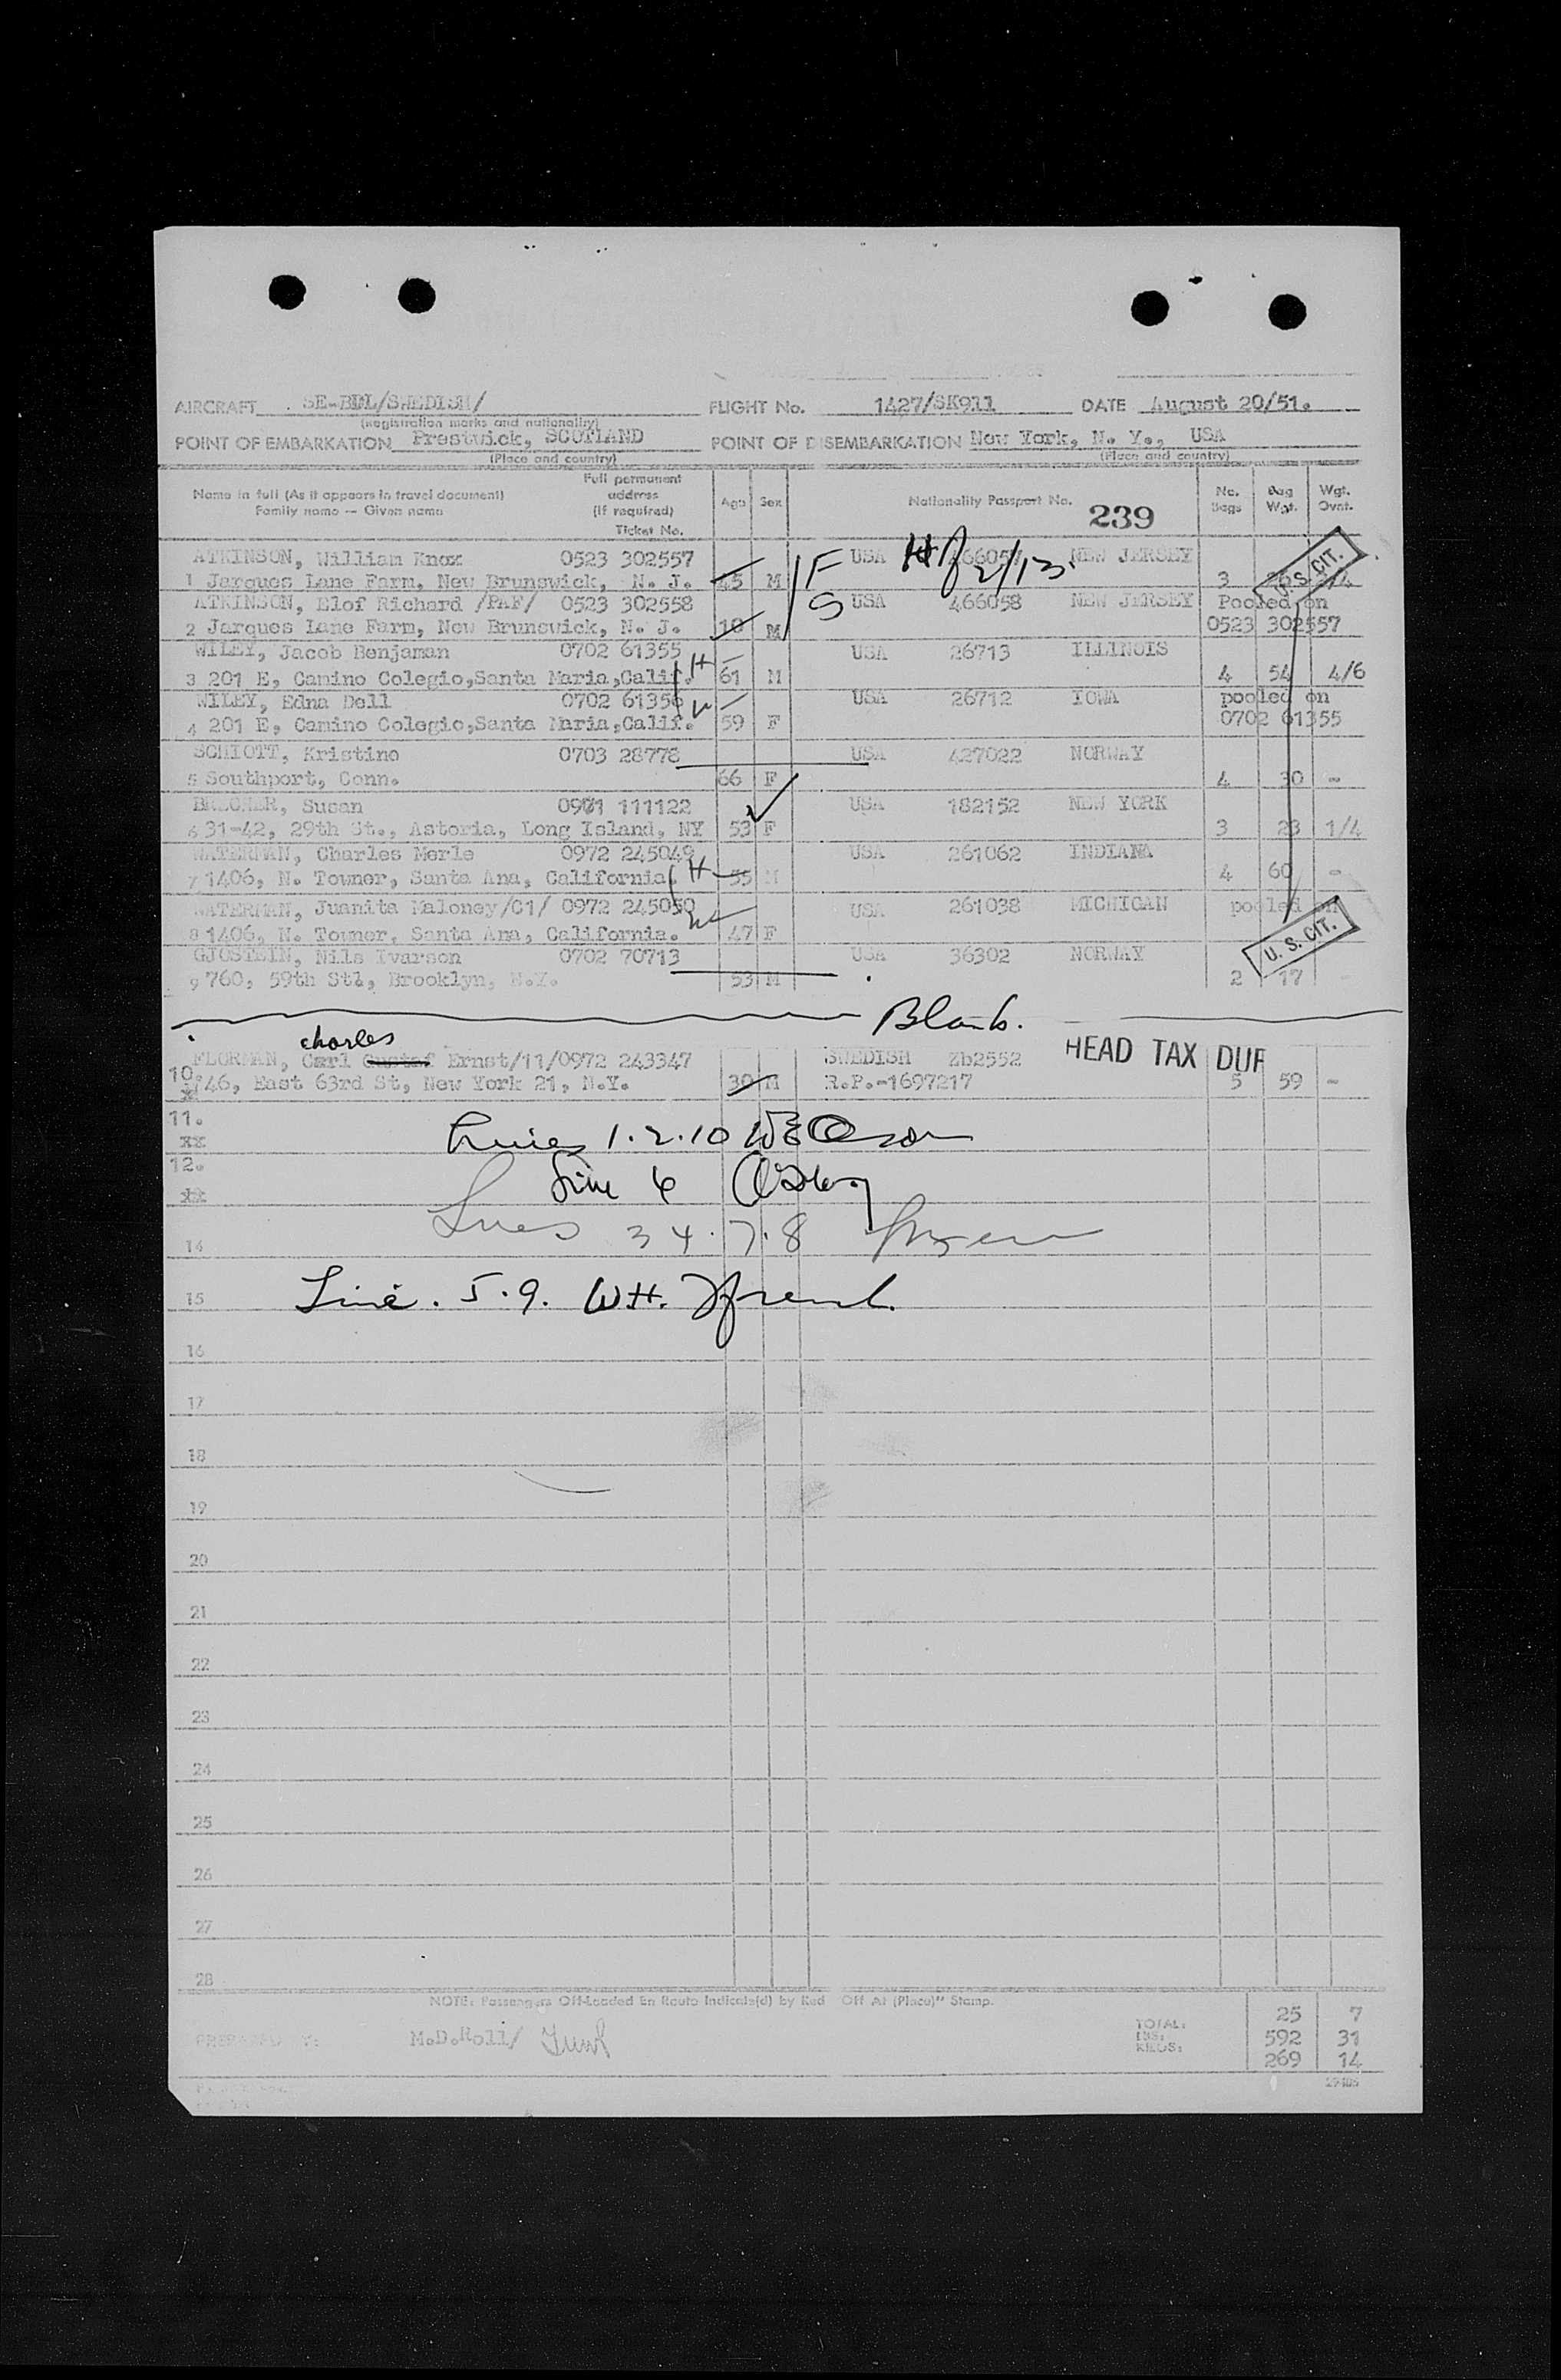 AIRCRAFT SE-BDL/SWEDISH/ FLIGHT No. 1427/SK911 DATE August 20/51.
(Registration marks and nationality)
POINT OF EMBARKATION Prestwick, SCOTLAND POINT OF DISEMBARKATION New York, N. Y., USA
(Place and country) (Place and country)
Name in full (As it appears in travel document) Family name -- Given name Full permanent address (If required) Ticket No. Age Sex Nationality Passport No. 239 No. Bags Bag Wgt. Wgt. Ovnt.
ATKINSON, William Knox 0523 302557 F USA 466057 NEW JERSEY
1 Jarques Lane Farm, New Brunswick, N. J. 45 M 2/13. 3 U.S. CIT.
ATKINSON, Elof Richard /PAF/ 0523 302558 S USA 466058 NEW JERSEY Pooled on
2 Jarques Lane Farm, New Brunswick, N. J. 10 M 0523 302557
WILEY, Jacob Benjaman 0702 61355 H USA 26713 ILLINOIS
3 201 E, Camino Colegio,Santa Maria,Calif. 61 M 4 54 4/6
WILEY, Edna Dell 0702 61356 W USA 26712 IOWA pooled on
4 201 E, Camino Colegio,Santa Maria,Calif. 59 F 0702 61355
SCHIOTT, Kristine 0703 28778 USA 427022 NORWAY
5 Southport, Conn. 66 F 4 30 -
BRECHER, Susan 0971 111122 USA 182152 NEW YORK
6 31-42, 29th St., Astoria, Long Island, NY 53 F 3 23 1/4
WATERMAN, Charles Merle 0972 245049 H USA 261062 INDIANA
7 1406, N. Towner, Santa Ana, California. 55 M 4 60 -
WATERMAN, Juanita Maloney/C1/ 0972 245050 W USA 261038 MICHIGAN pooled on
8 1406, N. Towner, Santa Ana, California. 47 F U. S. CIT.
GJOSTEIN, Nils Ivarson 0702 70713 USA 36302 NORWAY
9 760, 59th Stl, Brooklyn, N.Y. 53 M 2 17 -
Blank.
charles
FLORMAN, Carl Gustaf Ernst/11/0972 243347 SWEDISH Zb2552 HEAD TAX DUE
10. 746, East 63rd St, New York 21, N.Y. 30 M R.P.-1697217 5 59 -
11.
xx
Lines 1.2.10
12.
xx
Line 6
Lines 3 4.7.8
14
15 Line. 5.9. W.H. French
16
17
18
19
20
21
22
23
24
25
26
27
28
NOTE: Passengers Off-Loaded En Route Indicate(d) by Red Off At (Place)" Stamp.
PREPARED BY: M.D.Roll/ TOTAL: 25 7
LBS: 592 31
KILOS: 269 14